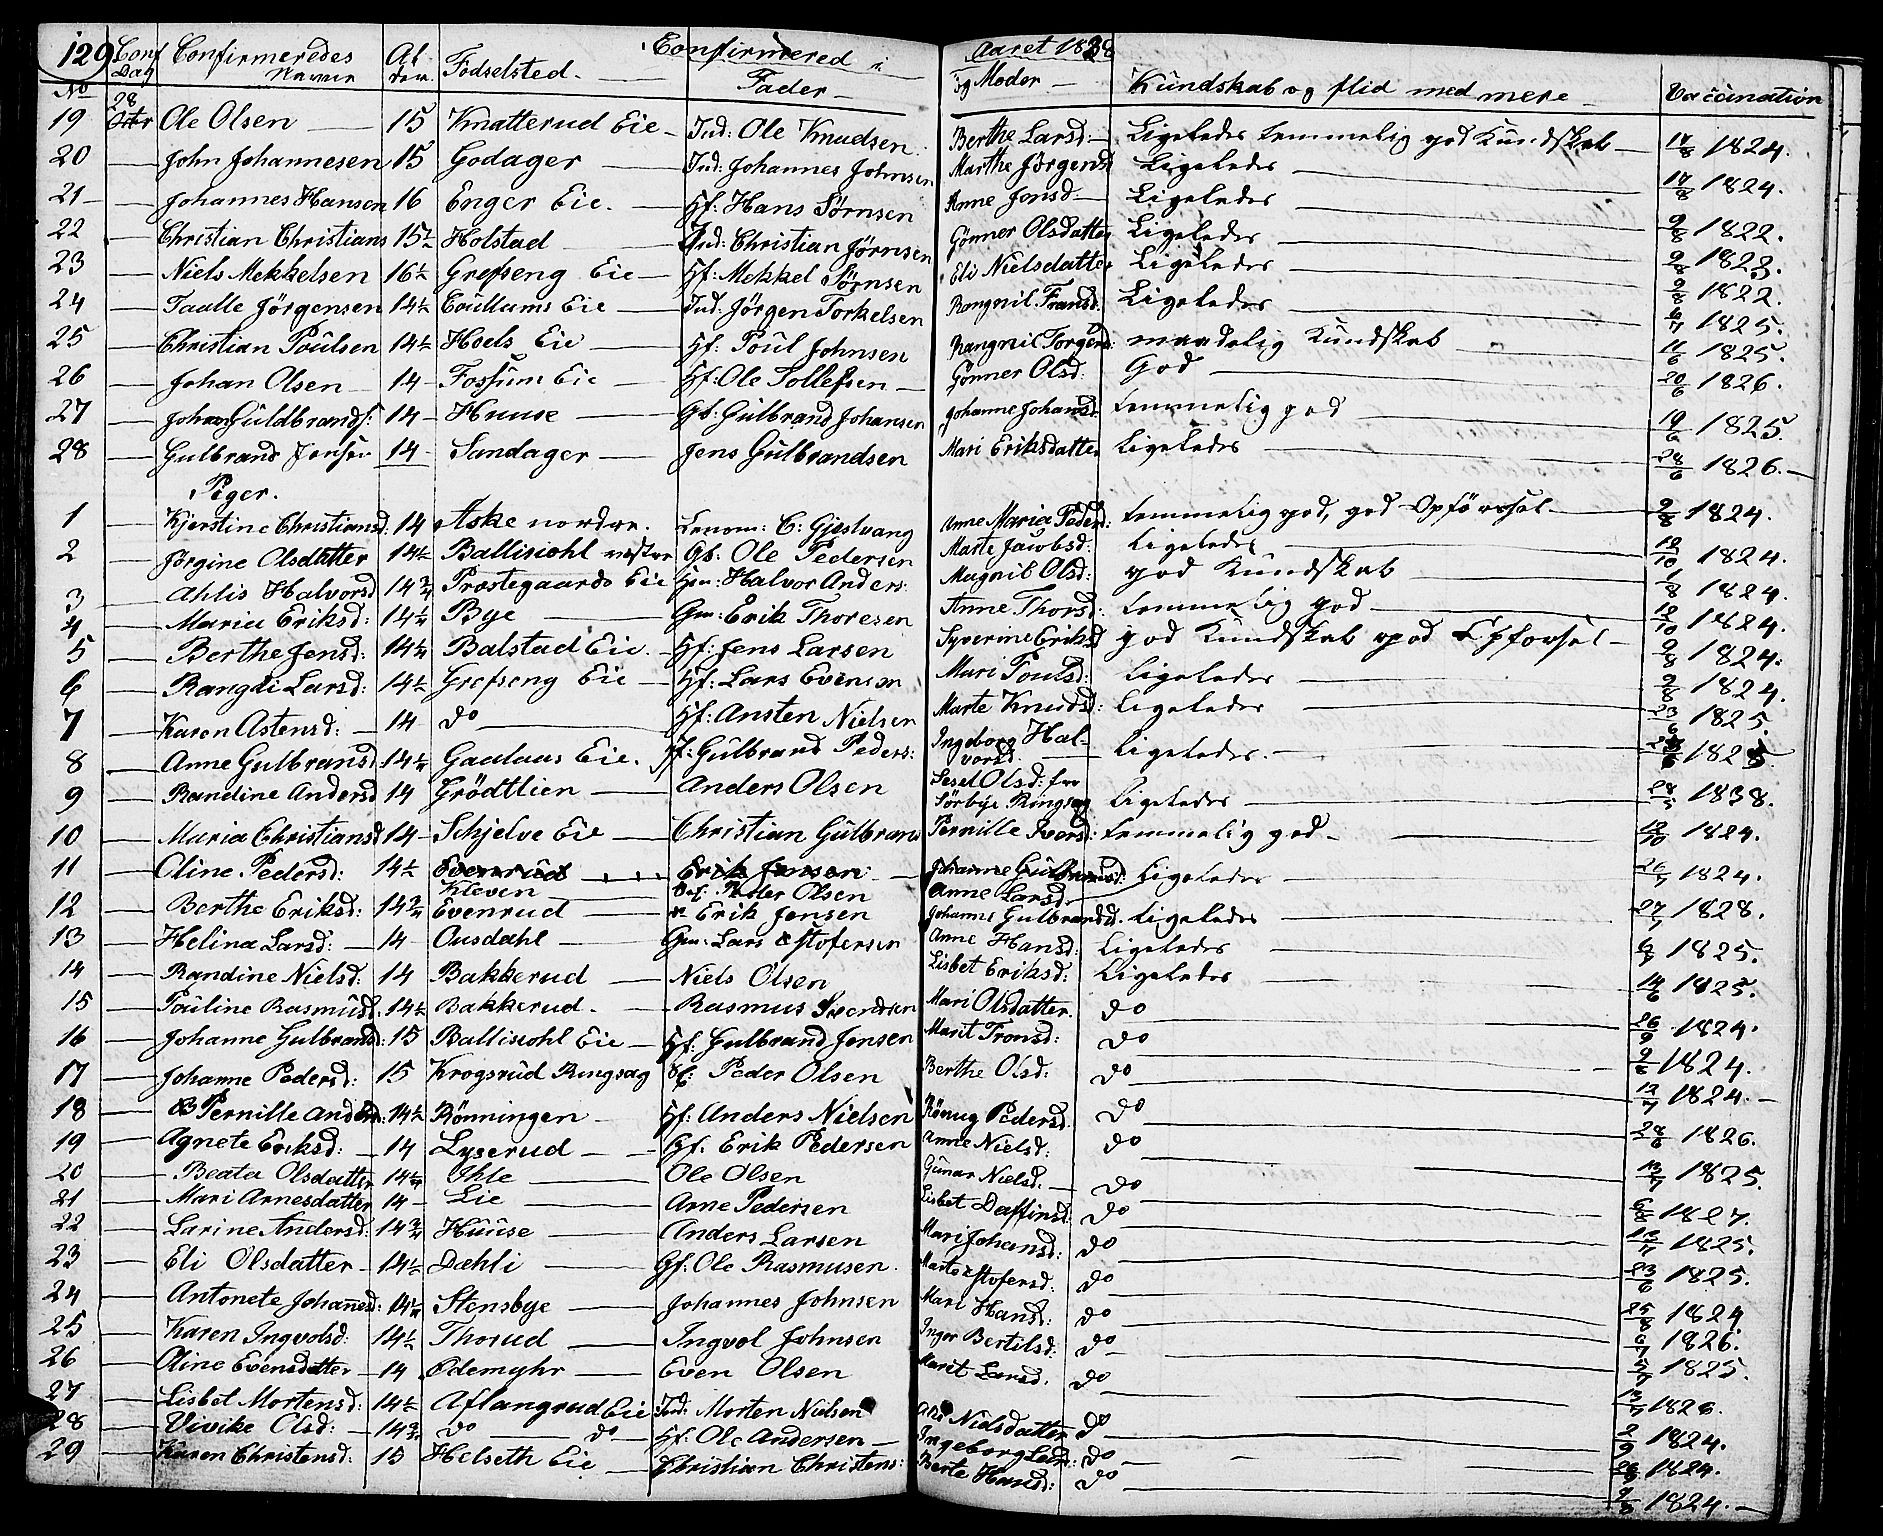 129 Conf Dag Confirmeredes Navne Alder Fødselsted. Confirmered i Fader Aaret 1838 og Moder Kundskab og flid med mere Vaccination
No
19 28 Octbr Ole Olsen 15 Knatterud Eie Ind: Ole Knudsen Berthe Larsd: Ligeledes temmelig god Kundskab 17/8 1824.
20 John Johannesen 15 Godager Ind: Johannes Johnsen Marthe Jørgensd Ligeledes 17/8 1824.
21 Johannes Hansen 16 Enger Eie. Hf: Hans Sørnsen Anne Jonsd Ligeledes 9/8 1822.
22 Christian Christians 15½ Holstad Ind: Christian Jörnsen Gönner Olsdatter Ligeledes 9/8 1823.
23 Niels Mekkelsen 16½ Grefseng Eie Hf: Mekkel Sörnsen Eli Nielsdatter Ligeledes 9/8 1822.
24 Taalle Jörgensen 14½ Coullums Eie Ind: Jörgen Torkelsen Rangnil Fransd: Ligeledes 6/7 1825.
25 Christian Poulsen 14½ Hoels Eie Hf: Poul Johnsen Rangnil Torgersd: maadelig Kundskab 11/6 1825.
26 Johan Olsen 14 Fossum Eie Hf: Ole Tollefsen Gönner Olsd: God 20/6 1826.
27 Johan Guldbrands: 14 Huuse Gb: Gulbrand Johansen Johanne Johansd: temmelig god 19/6 1825.
28 Gulbrand Jensen 14 Sandager Jens Gulbrandsen Mari Eriksdatter Ligeledes 28/6 1826.
Piger.
1 Kjerstine Christiansd: 14 Aske nordre. C: Gjestvang Anne Maria Pedersd: temmelig god, god Opförsel 9/8 1824.
2 Jörgine Olsdatter 14½ Ballisiohl vestre Gb: Ole Pedersen Marte Jacobsd: Ligeledes 12/10 1824.
3 Ahlis Halvorsd 14¾ Prostegaards Eie Hm: Halvor Anders: Magnil Olsd: god Kundskab 1/8 1824.
4 Maria Eriksd: 14¼ Bye Gm: Erik Thoresen Anne Thorsd: temmelig god 12/10 1824.
5 Berthe Jensd: 14¼ Balstad Eie. Hf: Jens Larsen Syverine Eriksd god Kundskab og god Opförsel 9/8 1824.
6 Rangdi Larsd: 14½ Grefseng Eie Hf: Lars Evensen Mari Poulsd: Ligeledes 9/8 1824.
7 Karen Astensd: 14 do Hf: Ansten Nielsen Marte Knudsd: Ligeledes 23/6 1825.
8 Anne Gulbransd 14¼ Gaalaas Eie. Hf: Gulbrand Peders: Ingeborg Halvorsd: Ligeledes. 1825.
9 Randine Andersd 14 Grödtlien Anders Olsen Sesel Olsd: fra Sörbye Ringsag Ligeledes 1838.
10 Maria Christiansd 14 Schjelve Eie Christian Gulbrand Pernille Iversd: temmelig god 12/10 1824.
11 Oline Pedersd: 14½ Evenrud Erik Jensen Johanne Gulbransd: Ligeledes 26/7 1824.
Kleven Gf. Peder Olsen Anne Larsd
12 Berthe Eriksd: 14¾ Evenrud Erik Jensen Johanne Gulbrandsd. Ligeledes 27/7 1828.
13 Helina Larsd: 14 Ousdahl Gm: Lars Xstofersen Anne Hansd: Ligeledes 6/7 1825.
14 Randine Nielsd: 14 Bakkerud Niels Olsen Lisbet Eriksd: Ligeledes 14/6 1825.
15 Pouline Rasmusd. 14½ Bakkerud. Rasmus Svendsen Mari Olsdatter. do 26/9 1824.
16 Johanne Gulbransd: 15 Ballisiohl Eie Hf: Gulbrand Jensen Marit Tronsd: do 9/8 1824.
17 Johanne Pedersd: 15 Krogsrud Ringsag Peder Olsen Berthe Olsd: do 13/7 1824.
18 Pernille Andersd: 14½ Rönningen Hf: Anders Nielsen Rönnug Pedersd. do 28/6 1826.
19 Agnete Eriksd: 14 Lyserud Hf. Erik Pedersen Anne Nielsd: do 13/7 1825.
20 Beata Olsdatter 14¼ Ihle Ole Olsen Gunar Nielsd. do 6/8 1827.
21 Mari Arnesdatter 14 Lie Arne Pedersen Lisbet Daffinsd. do 13/7 1825.
22 Larine Andersd: 14¾ Huuse Anders Larsen Mari Johansd: do 23/6 1825.
23 Eli Olsdatter 14½ Dæhli Gf: Ole Rasmusen. Marte Xstofersd: do 25/8 1824
24 Antonete Johannesd: 14¼ Stensbye Johannes Johnsen Mari Hansd: do 6/7 1826.
25 Karen Ingvolsd: 14½ Thorud Ingvol Johnsen Inger Bertilsd: do 5/7 1825.
26 Oline Evensdatter 14 Ødemyhr Even Olsen Marit Larsd. do 13/7
27 Lisbet Mortensd: 14½ Aflangrud Eie Ind: Morten Nielsen Nielsdatter do 2/9 1824.
28 Vivike Olsd: 14¾ do do Hf: Ole Andersen Ingeborg Larsd: do 1824.
29 Karen Christensd: 15 Helseth Eie Christian Christens: Berte Hansd: do 9/8 1824.